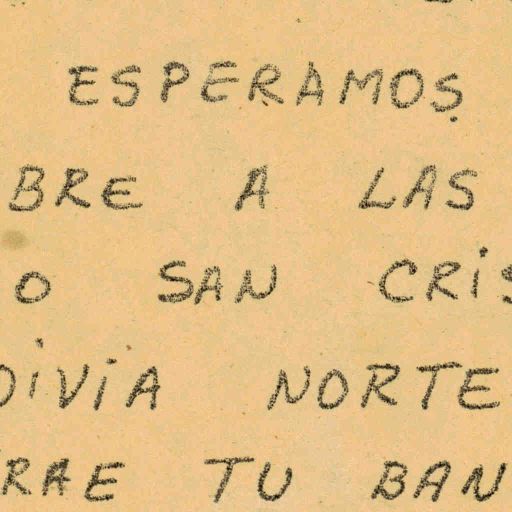 ESPERAMOS
BRE A LAS
O SAN CRiS
DiViA NORTE
RAE TU BAN